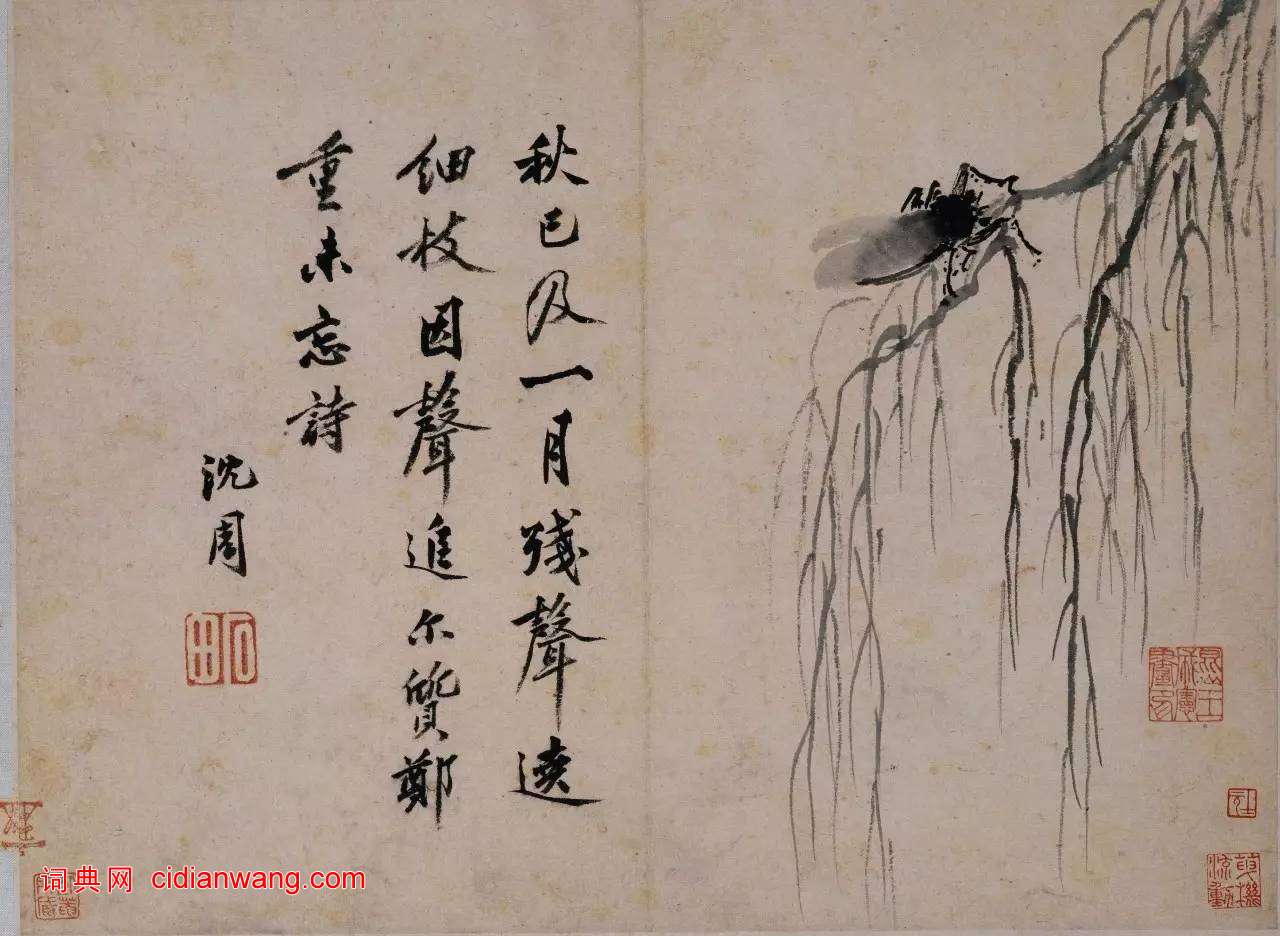 秋已及一月殘聲遶
細枝因聲追尔質鄭
重未忘詩
沈周
石田
词典网 cidianwang.com